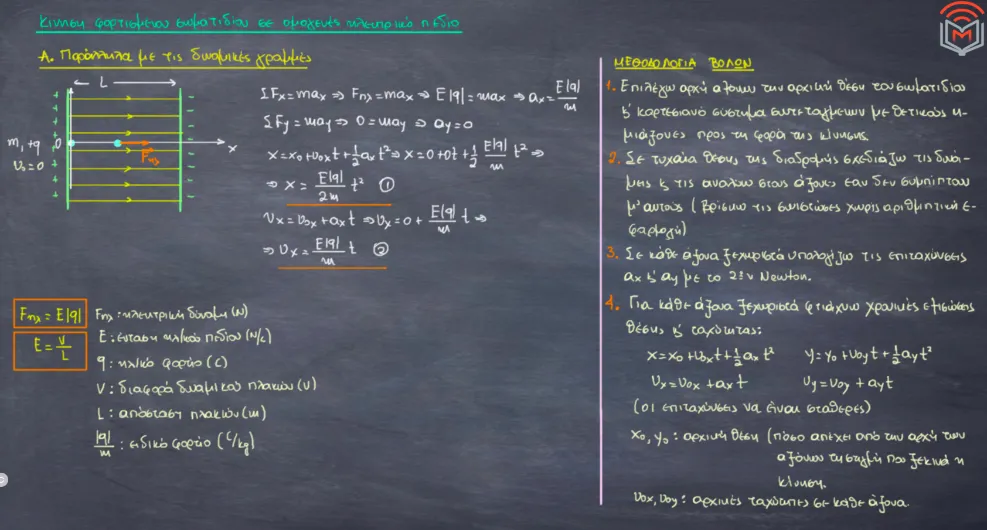 Κίνηση φορτισμένου σωματιδίου σε ομογενές ηλεκτρικό πεδίο
Α. Παράλληλα με τις δυναμικές γραμμές
L
+ + + + + + + +
- - - - - - - -
m, +q
υ₀=0
0
Fηλ
x
ΣFx=max ⇒ Fηλ=max ⇒ E|q|=max ⇒ ax=E|q|/m
ΣFy=may ⇒ 0=may ⇒ ay=0
x=x₀+υ₀xt+½axt² ⇒ x=0+0t+½ E|q|/m t² ⇒
⇒ x= E|q|/2m t² ①
υx=υ₀x+axt ⇒ υx=0+ E|q|/m t ⇒
⇒ υx= E|q|/m t ②
Fηλ=E|q|
E=V/L
Fηλ: ηλεκτρική δύναμη (N)
E: ένταση ηλ/κού πεδίου (N/C)
q: ηλ/κό φορτίο (C)
V: διαφορά δυναμικού πλακών (V)
L: απόσταση πλακών (m)
|q|/m: ειδικό φορτίο (C/kg)
ΜΕΘΟΔΟΛΟΓΙΑ ΒΟΛΩΝ
1. Επιλέγω αρχή αξόνων την αρχική θέση του σωματιδίου
& καρτεσιανό σύστημα συντεταγμένων με θετικούς η-
μιάξονες προς τη φορά της κίνησης.
2. Σε τυχαία θέση της διαδρομής σχεδιάζω τις δυνά-
μεις & τις αναλύω στους άξονες εάν δεν συμπίπτουν
μ'αυτούς (βρίσκω τις συνιστώσες χωρίς αριθμητική ε-
φαρμογή)
3. Σε κάθε άξονα ξεχωριστά υπολογίζω τις επιταχύνσεις
ax & ay με το 2ο ν Newton.
4. Για κάθε άξονα ξεχωριστά φτιάχνω χρονικές εξισώσεις
θέσης & ταχύτητας:
x=x₀+υ₀xt+½axt² y=y₀+υ₀yt+½ayt²
υx=υ₀x+axt υy=υ₀y+ayt
(οι επιταχύνσεις να είναι σταθερές)
x₀, y₀: αρχική θέση (πόσο απέχει από την αρχή των
αξόνων τη στιγμή που ξεκινά η
κίνηση.
υ₀x, υ₀y: αρχικές ταχύτητες σε κάθε άξονα.